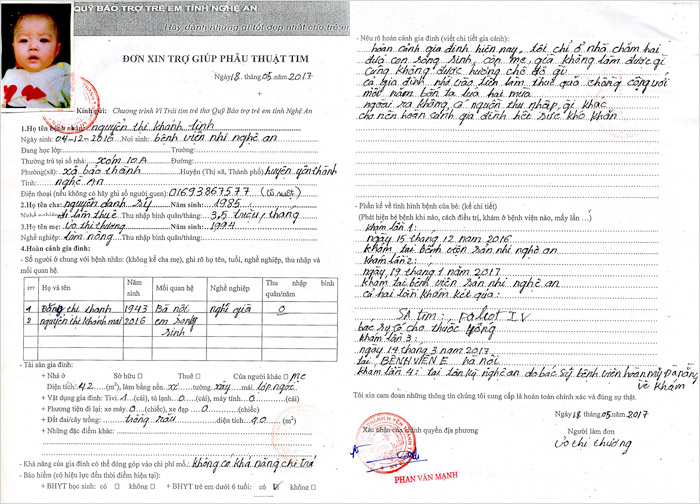 QUỸ BẢO TRỢ TRẺ EM TỈNH NGHỆ AN
Hãy dành những gì tốt đẹp nhất cho trẻ em
ĐƠN XIN TRỢ GIÚP PHẪU THUẬT TIM
Ngày 18 tháng 05 năm 2017
Kính gửi: Chương trình Vì Trái tim trẻ thơ Quỹ Bảo trợ trẻ em tỉnh Nghệ An
1.Họ tên bệnh nhân: nguyễn thi khánh linh
Ngày sinh: 04-12-2016 Nơi sinh: bệnh viện nhi nghệ an
Đang học lớp: Trường:
Thường trú tại số nhà: xóm 10A Đường:
Phường(xã): xã bảo thành Huyện (Thị xã, Thành phố) huyện yên thành
Tỉnh: nghệ An
Điện thoại (nếu không có hãy ghi số người quen): 01693867577
2.Họ tên cha: nguyễn danh sỹ Năm sinh: 1985
Nghề nghiệp: đi làm thuê Thu nhập bình quân/tháng: 3,5 triệu / tháng
3.Họ tên mẹ: võ thi thương Năm sinh: 1994
Nghề nghiệp: làm nông Thu nhập bình quân/tháng:
4.Hoàn cảnh gia đình:
- Số người ở chung với bệnh nhân: (không kể cha mẹ), ghi rõ họ tên, tuổi, nghề nghiệp, thu nhập và
mối quan hệ.
STT Họ và tên Năm sinh Mối quan hệ Nghề nghiệp Thu nhập bình quân/năm
1 thi thanh 1943 Bà nội nghỉ già 0
2 nguyễn thi khánh mai 2016 em song sinh
- Tài sản gia đình:
+ Nhà ở Sở hữu □ Thuê □ Của người khác □ mẹ
Diện tích: 42 (m²), làm bằng nền: x tường: xây mái: lợp ngói
+ Vật dụng gia đình: Tivi: 1 (cái), tủ lạnh: 0 (cái), máy tính: 0 (cái)
+ Phương tiện đi lại: xe máy: 0 (chiếc), xe đạp 0 (chiếc)
+ Đất đai/cây trồng: trồng rau diện tích: 90 (m²)
+ Những đặc điểm khác:
- Khả năng của gia đình có thể đóng góp vào chi phí mổ: không có khả năng chi trả
- Bảo hiểm (có hiệu lực đến thời điểm hiện tại):
+ BHYT học sinh: có □ không □ + BHYT trẻ em dưới 6 tuổi: có ☑ không □
- Nêu rõ hoàn cảnh gia đình (viết chi tiết gia cảnh):
hoàn cảnh gia đình hiện nay, tôi chỉ ở nhà chăm hai
đứa con song sinh, còn mẹ già không làm được gì
cũng không được hưởng chế độ gì
cả gia đình nhờ vào tiền làm thuê quá chồng cộng với
một năm bán tạ lúa hai mùa
ngoài ra không có nguồn thu nhập gì khác
cho nên hoàn cảnh gia đình hết sức khó khăn
- Phần kể về tình hình bệnh của bé: (kể chi tiết)
(Phát hiện bé bệnh khi nào, cách điều trị, khám ở bệnh viện nào, mấy lần ...)
khám lần 1:
ngày 15 tháng 12 năm 2016
khám tại bệnh viện sản nhi nghệ an
khám lần 2:
ngày, 19 tháng 1 năm 2017
khám tại bệnh viện sản nhi nghệ an
cả hai lần khám kết quả:
SA tim: Fallot IV
bác sỹ ko cho thuốc uống
khám lần 3:
ngày 14 tháng 3 năm 2017
tại BỆNH VIỆN E hà nội
khám lần 4: tại tân kỳ nghệ an do bác sỹ bệnh viện hoàn mỹ Đà nẵng
về khám
Tôi xin cam đoan những thông tin chúng tôi cung cấp là hoàn toàn chính xác và đúng sự thật.
Ngày 18 tháng 05 năm 2017
Xác nhận của chính quyền địa phương Người làm đơn
võ thi thương
PHAN VĂN MẠNH